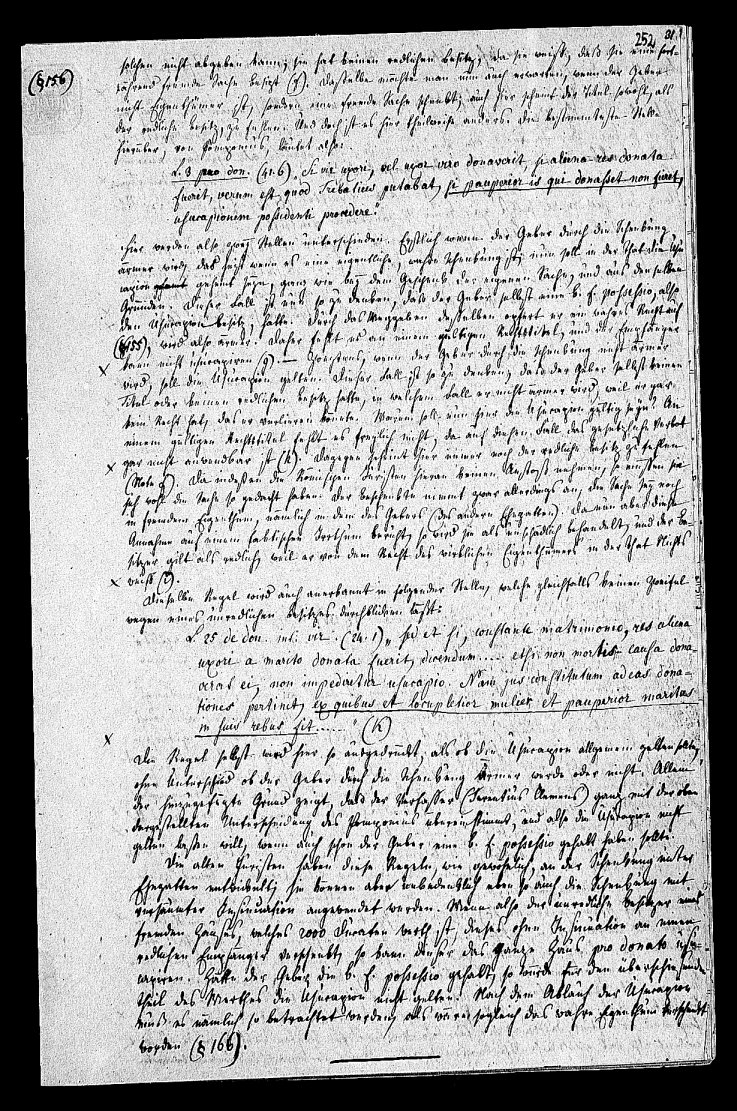 252 31.
(§156)
solchen nicht abgeben kann; sie hat keinen redlichen Besitz, da sie weiß, daß sie eine fort-
während fremde Sache besizt (f). Dasselbe möchte man nun auch erwarten, wenn der Geber
nicht Eigenthümer ist, sondern eine fremde Sache schenkt; auch hier scheint der Titel sowohl, als
der redliche Besitz, zu fehlen. Und doch ist es hier theilweise anders. Die bestimmteste Stelle
hierüber, von Pomponius, lautet also:
L. 3 pro don. (41. 6). Si vir uxori, vel uxor viro donaverit, si aliena res donata
fuerit, verum est, quod Trebatius putabat, si pauperior is qui donasset non fieret,
usucapionem possidenti procedere."
Hier werden also zwey Stellen unterschieden. Erstlich wenn der Geber durch die Schenkung
ärmer wird, das heißt wenn es eine eigentliche, wahre Schenkung ist; nun soll in der That die Usu-
capion gehemmt seyn, ganz wie bey dem Geschenk der eigenen Sache, und aus denselben
Gründen. Dieser Fall ist nun so zu denken, daß der Geber selbst eine b. f. possessio, also
den Usucapionsbesitz, hatte. Durch das Weggeben desselben opfert er ein wahres Recht auf
(§155), wird also ärmer. Daher fehlt es an einem gültigen Rechtstitel, und der Empfänger
kann nicht usucapiren (g). — Zweytens, wenn der Geber durch die Schenkung nicht ärmer
wird, soll die Usucapion gelten. Dieser Fall ist so zu denken, daß der Geber selbst keinen
Titel oder keinen redlichen Besitz hatte, in welchem Fall er nicht ärmer wird, weil er gar
kein Recht hat, das er verlieren könnte. Warum soll nun hier die Usucapion gültig seyn? An
einem gültigen Rechtstitel fehlt es freylich nicht, da auf diesen Fall das gesetzliche Verbot
gar nicht anwendbar ist (h). Dagegen scheint hier immer noch der redliche Besitz zu fehlen
(Note f). Da indessen die Römischen Juristen hieran keinen Anstoß nehmen, so müssen sie
sich wohl die Sache so gedacht haben. Der Beschenkte nimmt zwar allerdings an, die Sache sey noch
in fremdem Eigenthum, nämlich in dem des Gebers (des andern Ehegatten). Da nun aber diese
Annahme auf einem factischen Irrthum beruht, so wird sie als unschädlich behandelt, und der Be-
sitzer gilt als redlich, weil er von dem Recht des wirklichen Eigenthümers in der That Nichts
weiß (i).
Dieselbe Regel wird auch anerkannt in folgender Stelle, welche gleichfalls keinen Zweifel
wegen eines unredlichen Besitzes durchblicken läßt:
L. 25 de don. int. vir. (24. 1) „sed et si, constante matrimonio, res aliena
uxori a marito donata fuerit, dicendum ..... etsi non mortis causa dona-
verat ei, non impediretur usucapio. Nam jus constitutum ad eas dona-
tiones pertinet, ex quibus et locupletior mulier et pauperior maritus
in suis rebus fit ......" (k)
Die Regel selbst wird hier so ausgedrückt, als ob die Usucapion allgemein gelten sollte,
ohne Unterschied ob der Geber durch die Schenkung ärmer werde oder nicht. Allein
der hinzugefügte Grund zeigt, daß der Verfasser (Terentius Clemens) ganz mit der oben
dargestellten Unterscheidung des Pomponius übereinstimmt, und also die Usucapion nicht
gelten lassen will, wenn auch schon der Geber eine b. f. possessio gehabt haben sollte.
Die alten Juristen haben diese Regeln, wie gewöhnlich, an der Schenkung unter
Ehegatten entwickelt; sie können aber unbedenklich eben so auf die Schenkung mit
versäumter Insinuation angewendet werden. Wenn also der unredliche Besitzer eines
fremden Hauses, welches 2000 Ducaten werth ist, dieses ohne Insinuation an einen
redlichen Empfänger verschenkt, so kann dieser das ganze Haus pro donato usu-
capiren. Hätte der Geber die b. f. possessio gehabt, so würde für den überschießenden
Theil des Werthes die Usucapion nicht gelten. Nach dem Ablauf der Usucapion
muß es nämlich so betrachtet werden, als wäre sogleich das wahre Eigenthum verschenkt
worden (§ 166).